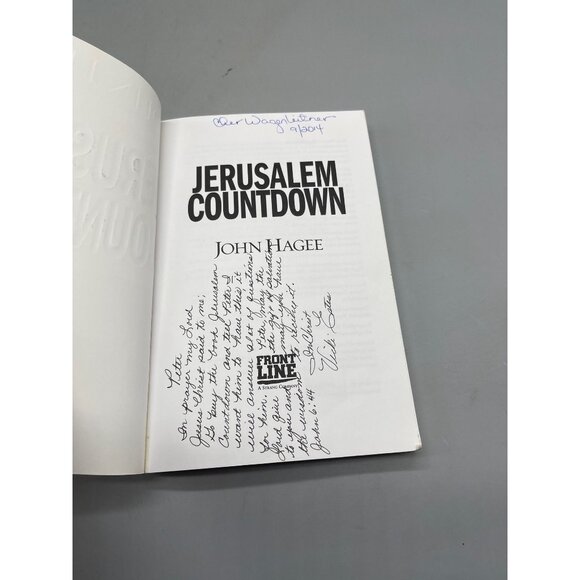 Wagenleitner
9/2014
JERUSALEM
COUNTDOWN
JOHN HAGEE
FRONT
LINE
A STRANG COMPANY
Peter
In prayer my Lord
Jesus Christ said to me;
to buy the book Jerusalem
Countdown and tell Peter I
want him to have this it
will answer alot of questions
for him. Peter, may the
Lord give the gift of salvation
to you and may you have
the wisdom to it.
John 6:44 In Christ
Vicki